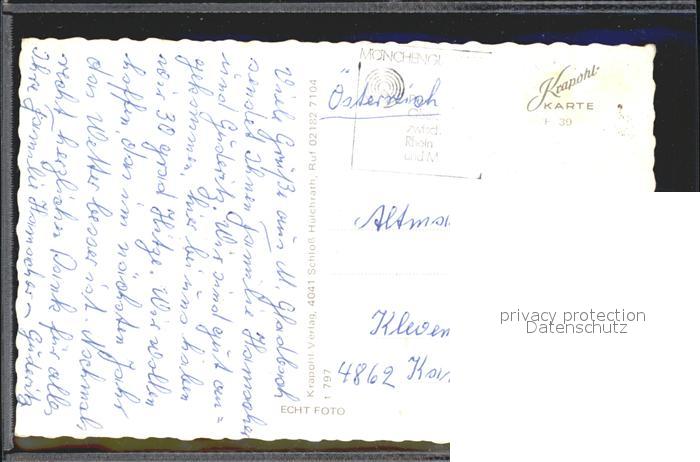 Viele Grüße aus M. Gladbach
sendet Ihnen Familie
und Güdritz. Wir sind gut an=
gekommen, hier bei uns haben
wir 30 grad Hitze. Wir wollen
hoffen, das im nächsten Jahr
das Wetter besser ist. Nochmals
recht herzlichen Dank für alles
Ihre Familie
MÖNCHENGL
zwisch.
Rhein
und M
Österreich
Krapohl-
KARTE
F 39
Altma
Kleven
4862 Ka
Krapohl-Verlag, 4041 Schloß Hülchrath, Ruf 02182 7104
1 797
ECHT FOTO
privacy protection
Datenschutz